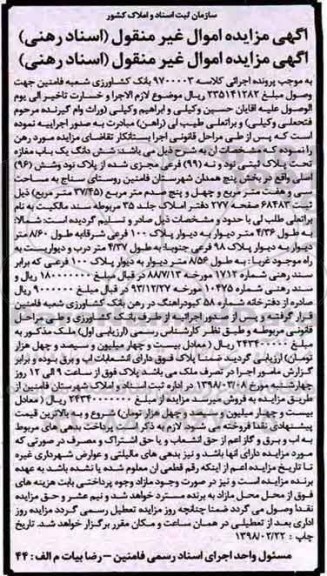 سازمان ثبت اسناد و املاک کشور
آگهی مزایده اموال غیر منقول (اسناد رهنی)
آگهی مزایده اموال غیر منقول (اسناد رهنی)
به موجب پرونده اجرائی کلاسه ۹۷۰۰۰۰۳ بانک کشاورزی شعبه فامنین جهت
وصول مبلغ ۲۳۵۱۴۱۲۸۲ ریال موضوع لازم الاجرا و خسارت تاخیر الی یوم
الوصول علیه آقایان حسین وکیلی و ابراهیم وکیلی (وراث وام گیرنده مرحوم
فتحعلی وکیلی) و براتعلی طلب لی (راهن) مبادرت به صدور اجراییه نموده
است که پس از طی مراحل قانونی اجرا بستانکار تقاضای مزایده مورد رهن
را نموده که مشخصات آن به شرح ذیل می باشد: شش دانگ یک باب مغازه
تحت پلاک ثبتی نود و نه (۹۹) فرعی مجزی شده از پلاک نود وشش (۹۶)
اصلی واقع در بخش پنج همدان شهرستان فامنین روستای سناج به مساحت
سی و هفت متر مربع و چهل و پنج صدم متر مربع (۳۷/۴۵ متر مربع) ذیل
ثبت ۶۸۴۸۳ صفحه ۲۷۷ دفتر املاک جلد ۳۵ مربوطه سند مالکیت به نام
براتعلی طلب لی با حدود و مشخصات ذیل صادر و تسلیم گردیده است: شمالا:
به طول ۴/۳۶ متر دیوار به دیوار پلاک ۱۰۰ فرعی شرقا: به طول ۸/۶۰ متر
دیوار به دیوار پلاک ۹۸ فرعی جنوبا: به طول ۴/۳۷ متر درب و دیواریست به
راه موجود غربا: به طول ۸/۵۶ متر دیوار به دیوار پلاک ۱۰۰ فرعی که برابر
سند رهنی شماره ۱۷۱۲ مورخه ۸۸/۷/۱۳ در قبال مبلغ ۱۸۰۰۰۰۰۰۰ ریال و
سند رهنی شماره ۱۰۴۷۵ مورخه ۹۳/۱۲/۲۷ در قبال مبلغ ۹۰۰۰۰۰۰۰ ریال
صادره از دفترخانه شماره ۵۸ کبودراهنگ در رهن بانک کشاورزی شعبه فامنین
قرار گرفته و پس از صدور اجرائیه از طرف بانک کشاورزی و طی مراحل
قانونی مربوطه و طبق نظر کارشناس رسمی (ارزیابی اول) ملک مذکور به
مبلغ ۲۴۳۴۰۰۰۰۰ ریال (معادل بیست و چهار میلیون و سیصد و چهل هزار
تومان) ارزیابی گردید. ضمنا پلاک فوق دارای انشعابات آب و برق بوده و برابر
گزارش مامور اجرا در تصرف ملک می باشد پلاک فوق از ساعت ۹ الی ۱۲ روز
چهارشنبه مورخ ۱۳۹۸/۰۳/۰۸ در اداره ثبت اسناد و املاک شهرستان فامنین از
طریق مزایده به فروش میرسد مزایده از مبلغ ۲۴۳۴۰۰۰۰۰ ریال (معادل
بیست و چهار میلیون و سیصد و چهل هزار تومان) شروع و به بالاترین قیمت
پیشنهادی نقدا فروخته می شود لازم به ذکر است پرداخت بدهی های مربوط
به آب و برق و گاز اعم از حق انشعاب و یا حق اشتراک و مصرف در صورتی که
مورد مزایده دارای آنها باشد و نیز بدهی های مالیاتی و عوارض شهرداری غیره
تا تاریخ مزایده اعم از اینکه رقم قطعی آن معلوم شده یا نشده باشد به عهده
برنده مزایده است و نیز در صورت وجود مازاد وجوه پرداختی بابت هزینه های
فوق از محل محل مازاد به برنده مسترد خواهد شد و نیم عشر و حق مزایده
نقدا وصول می گردد ضمنا چنانچه روز مزایده تعطیل رسمی گردد مزایده روز
اداری بعد از تعطیلی در همان ساعت و مکان مقرر برگزار خواهد شد. تاریخ
چاپ: ۱۳۹۸/۰۲/۲۲
مسئول واحد اجرای اسناد رسمی فامنین – رضا بیات م الف: ۴۴